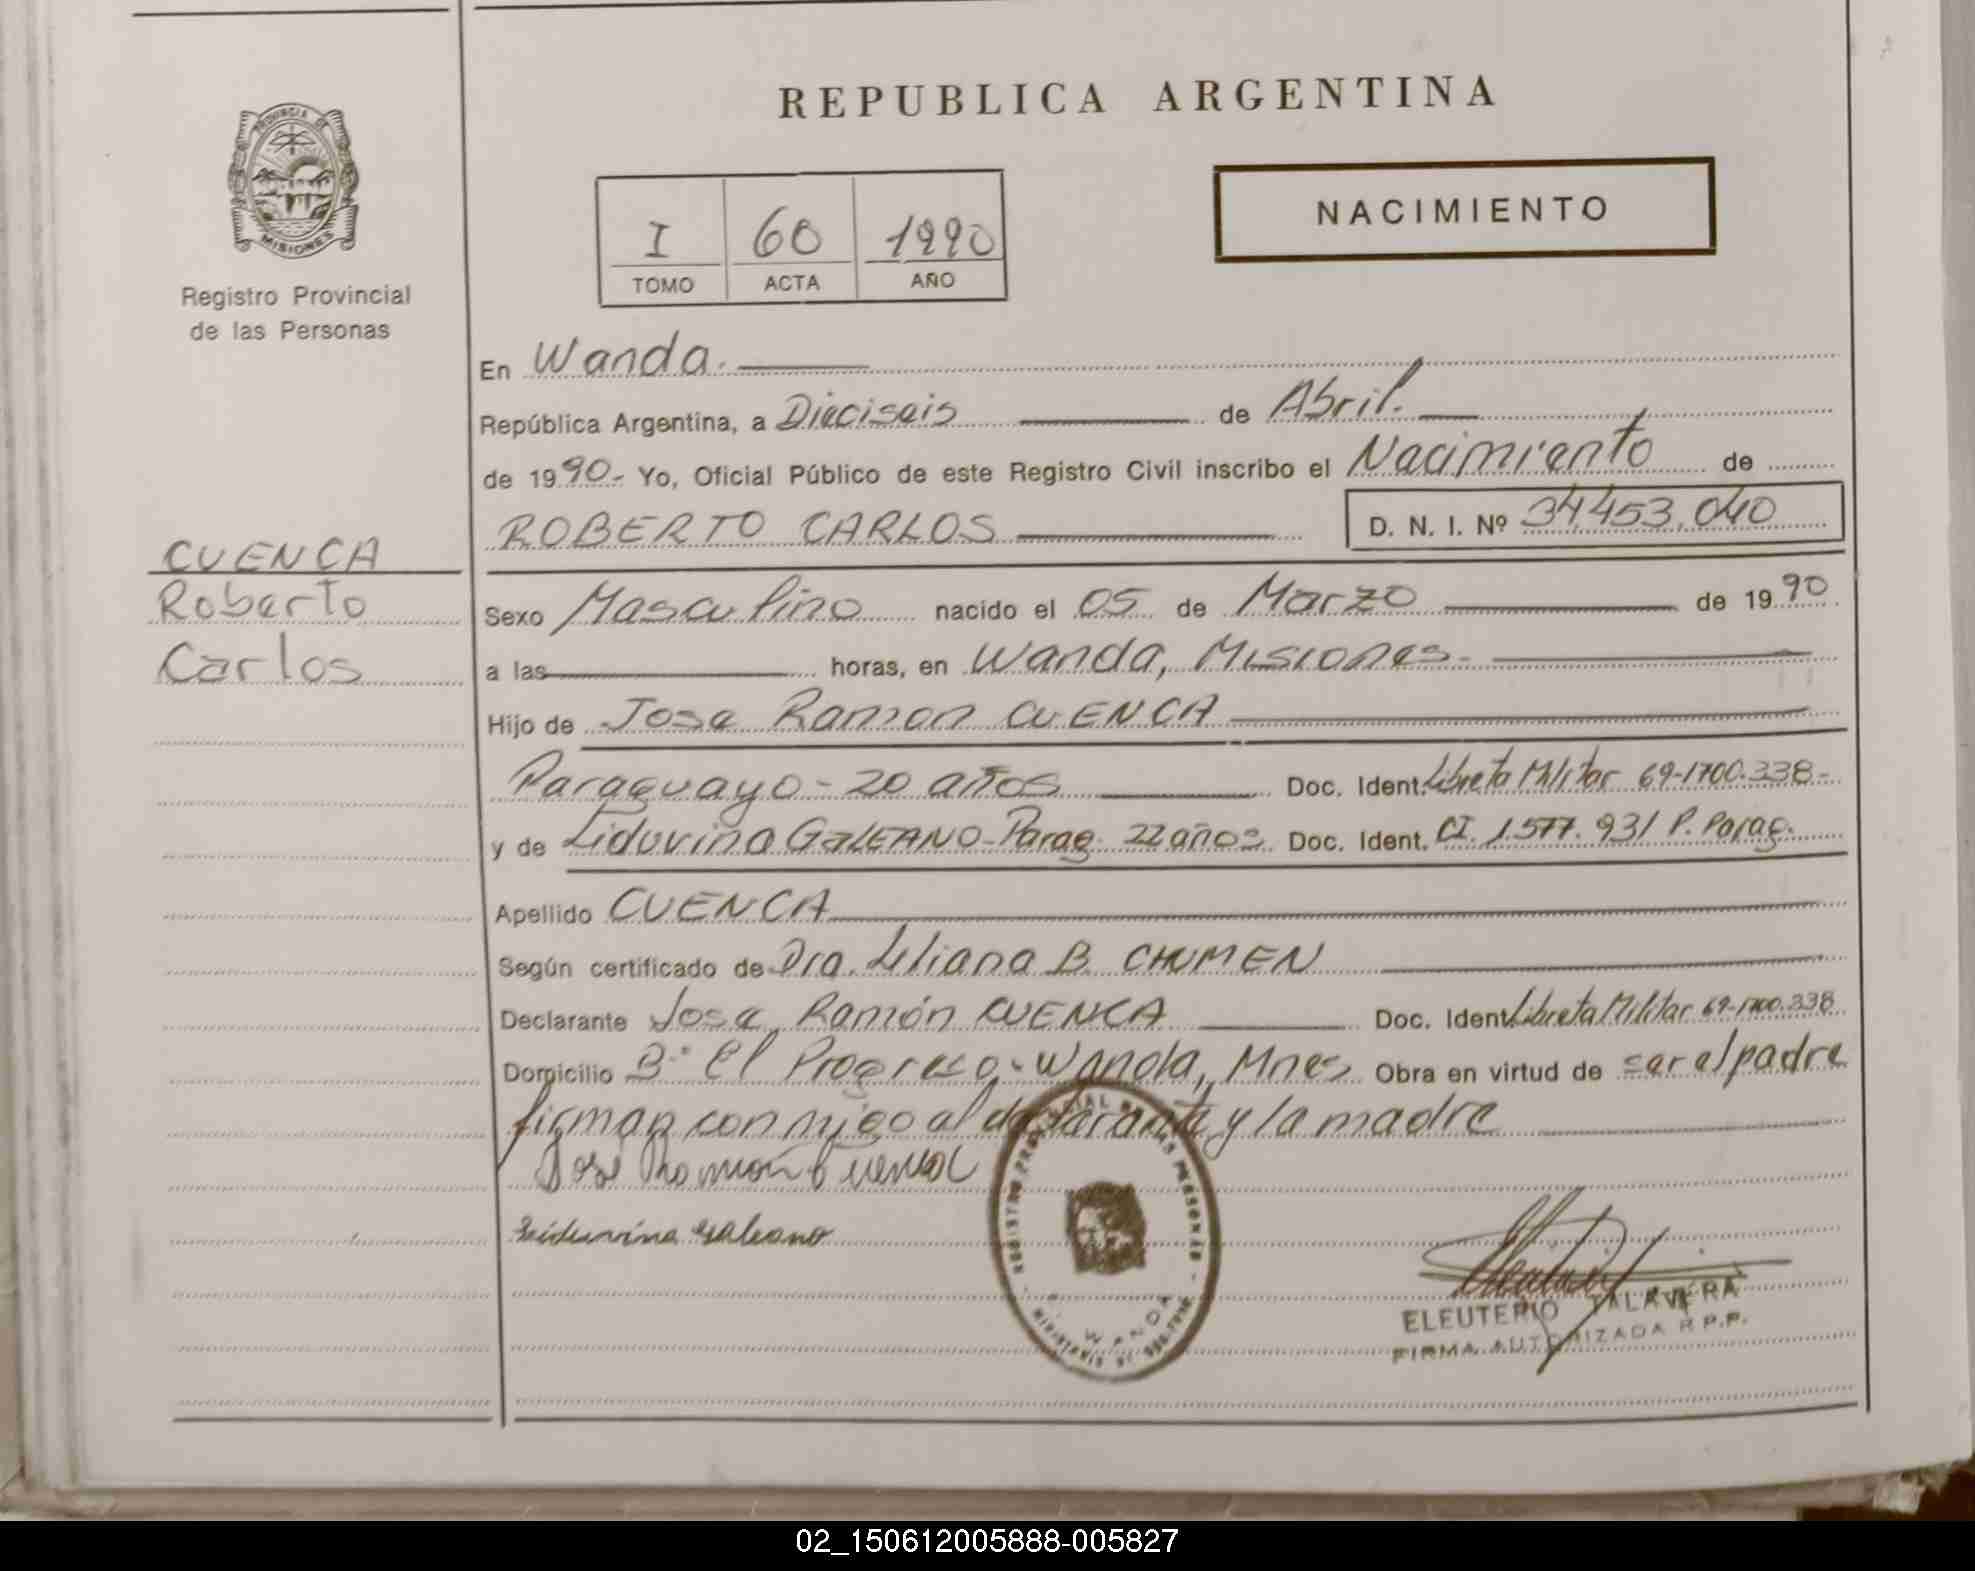 REPUBLICA ARGENTINA
PROVINCIA DE
MISIONES
Registro Provincial
de las Personas
I 60 1990
TOMO ACTA AÑO
NACIMIENTO
En Wanda.
República Argentina, a Dieciseis de Abril.
de 1990.- Yo, Oficial Público de este Registro Civil inscribo el Nacimiento de
ROBERTO CARLOS D. N. I. Nº 34.453.040
CUENCA
Roberto
Carlos
Sexo Masculino nacido el 05 de Marzo de 1990
a las horas, en Wanda, Misiones.-
Hijo de Jose Ramon CUENCA
Paraguayo - 20 años Doc. Ident. Libreta Militar 69-1700.338-
y de Liduvina GALEANO - Parag. 22 años Doc. Ident. CI. 1.577.931 P. Parag.
Apellido CUENCA
Según certificado de Dra. Liliana B. CHUMEN
Declarante Jose Ramón CUENCA Doc. Ident. Libreta Militar 69-1700.338
Domicilio B° El Progreso - Wanda, Mnes Obra en virtud de ser el padre
firman conmigo el declarante y la madre
José Ramón Cuenca
Liduvina Galeano
REGISTRO PROVINCIAL DE LAS PERSONAS
WANDA
ELEUTERIO TALAVERA
FIRMA AUTORIZADA R.P.P.
02_150612005888-005827